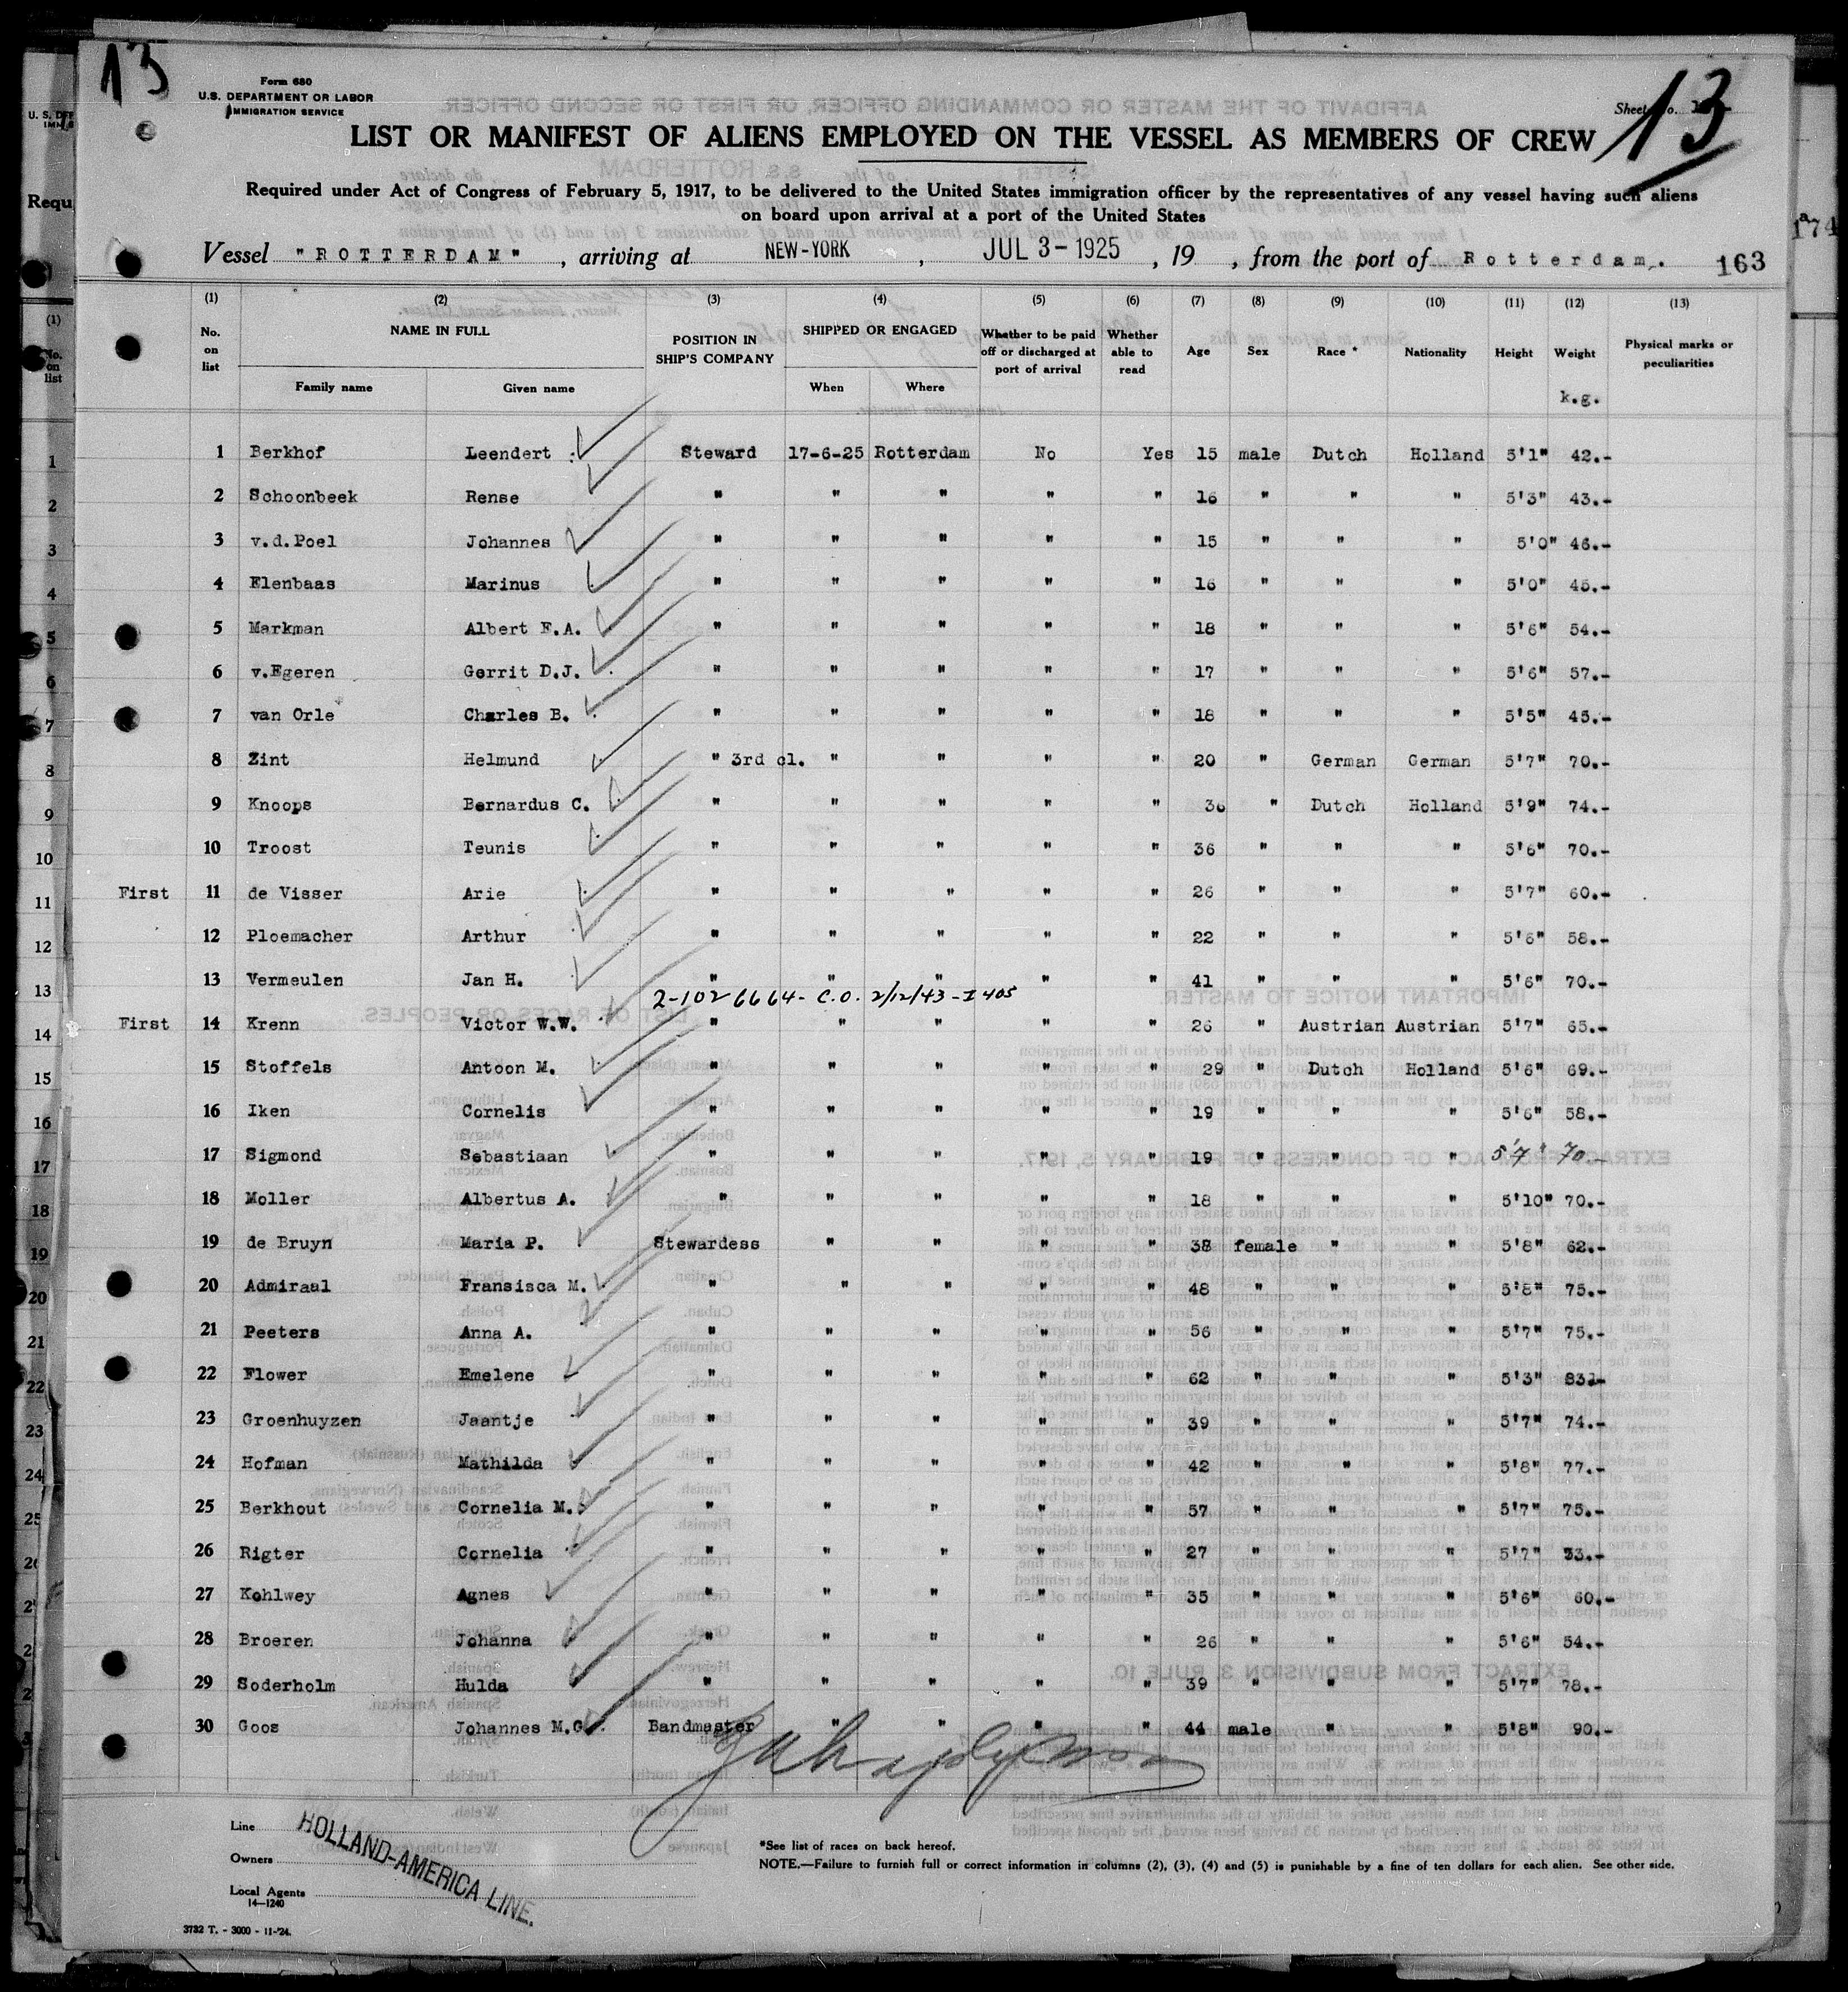 13
Form 680
U.S. DEPARTMENT OR LABOR
IMMIGRATION SERVICE
Sheet No.
13
LIST OR MANIFEST OF ALIENS EMPLOYED ON THE VESSEL AS MEMBERS OF CREW
Required under Act of Congress of February 5, 1917, to be delivered to the United States immigration officer by the representatives of any vessel having such aliens
on board upon arrival at a port of the United States
Vessel "ROTTERDAM", arriving at NEW-YORK, JUL 3-1925, 19 , from the port of Rotterdam. 163
(1) (2) (3) (4) (5) (6) (7) (8) (9) (10) (11) (12) (13)
No. on list NAME IN FULL Family name Given name POSITION IN SHIP'S COMPANY SHIPPED OR ENGAGED When Where Whether to be paid off or discharged at port of arrival Whether able to read Age Sex Race * Nationality Height Weight k.g. Physical marks or peculiarities
1 Berkhof Leendert Steward 17-6-25 Rotterdam No Yes 15 male Dutch Holland 5'1" 42.-
2 Schoonbeek Rense " " " " " 16 " " " 5'3" 43.-
3 v.d.Poel Johannes " " " " " 15 " " " 5'0" 46.-
4 Elenbaas Marinus " " " " " 16 " " " 5'0" 45.-
5 Markman Albert F.A. " " " " " 18 " " " 5'6" 54.-
6 v.Egeren Gerrit D.J. " " " " " 17 " " " 5'6" 57.-
7 van Orle Charles B. " " " " " 18 " " " 5'5" 45.-
8 Zint Helmund " 3rd cl. " " " " 20 " German German 5'7" 70.-
9 Knoops Bernardus C. " " " " " 36 " Dutch Holland 5'9" 74.-
10 Troost Teunis " " " " " 36 " " " 5'6" 70.-
First 11 de Visser Arie " " " " " 26 " " " 5'7" 60.-
12 Ploemacher Arthur " " " " " 22 " " " 5'6" 58.-
13 Vermeulen Jan H. " " " " " 41 " " " 5'6" 70.-
2-1026664- C.O. 2/12/43 - I 405
First 14 Krenn Victor W.W. " " " " " 26 " Austrian Austrian 5'7" 65.-
15 Stoffels Antoon M. " " " " " 29 " Dutch Holland 5'6" 69.-
16 Iken Cornelis " " " " " 19 " " " 5'6" 58.-
17 Sigmond Sebastiaan " " " " " 19 " " " 5'7" 70.-
18 Moller Albertus A. " " " " " 18 " " " 5'10" 70.-
19 de Bruyn Maria P. Stewardess " " " " 38 female " " 5'8" 62.-
20 Admiraal Fransisca M. " " " " " 48 " " " 5'8" 75.-
21 Peeters Anna A. " " " " " 56 " " " 5'7" 75.-
22 Flower Emelene " " " " " 62 " " " 5'3" 83.-
23 Groenhuyzen Jaantje " " " " " 39 " " " 5'7" 74.-
24 Hofman Mathilda " " " " " 42 " " " 5'8" 77.-
25 Berkhout Cornelia M. " " " " " 57 " " " 5'7" 75.-
26 Rigter Cornelia " " " " " 27 " " " 5'7"
27 Kohlwey Agnes " " " " " 35 " " " 5'6" 60.-
28 Broeren Johanna " " " " " 26 " " " 5'6" 54.-
29 Soderholm Hulda " " " " " 39 " " " 5'7" 78.-
30 Goos Johannes M.G. Bandmaster " " " " 44 male " " 5'8" 90.-
Line
Owners
Local Agents
HOLLAND-AMERICA LINE.
14-1240
3732 T. - 3000 - 11-'24.
*See list of races on back hereof.
NOTE.—Failure to furnish full or correct information in columns (2), (3), (4) and (5) is punishable by a fine of ten dollars for each alien. See other side.